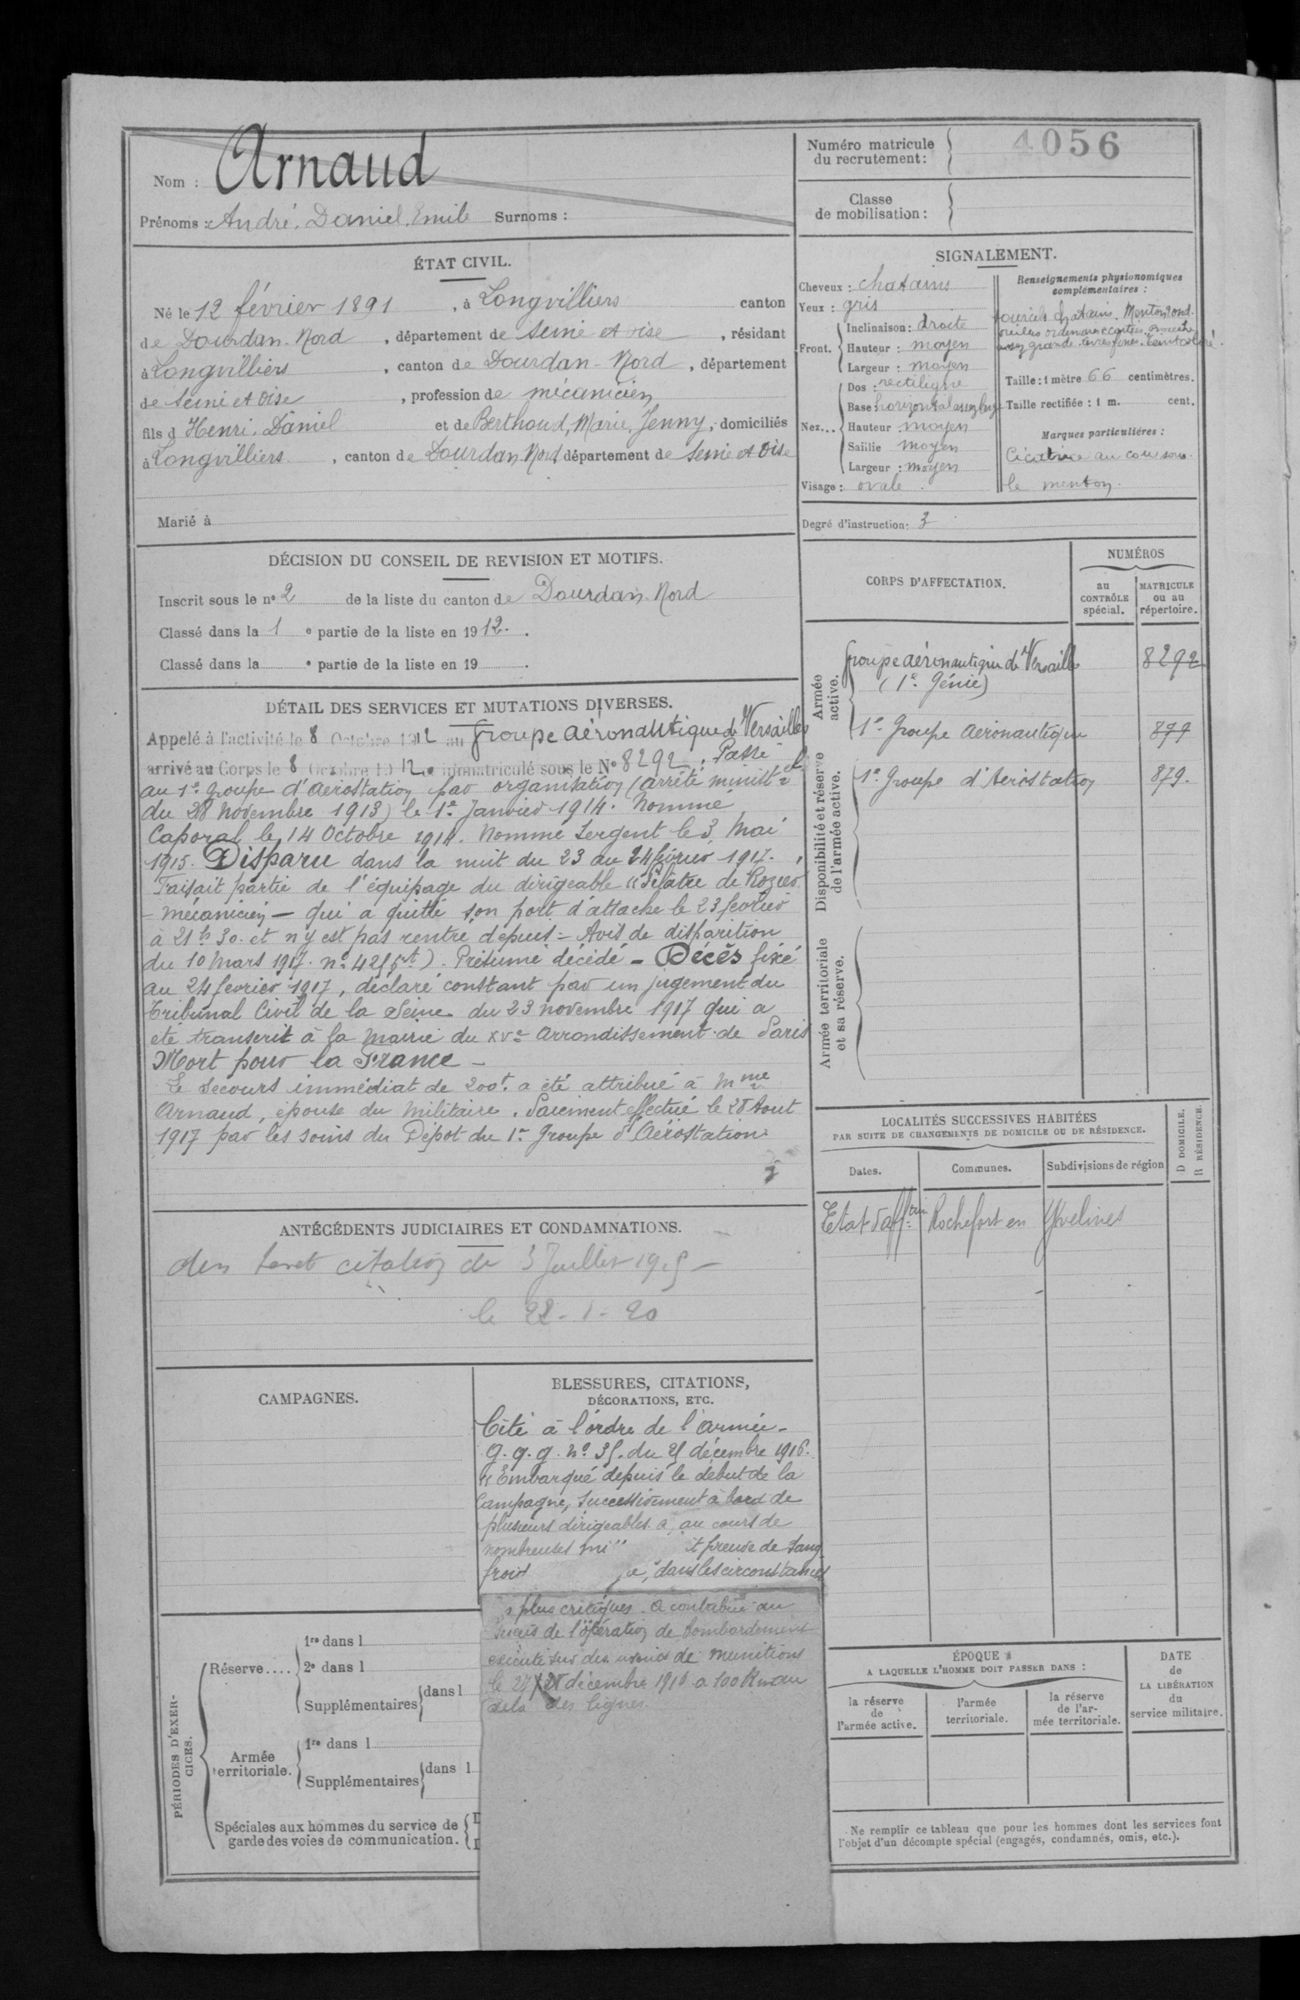 Nom : Arnaud
Prénoms : André, Daniel, Emile Surnoms :
Numéro matricule
du recrutement :
4056
Classe
de mobilisation :
ÉTAT CIVIL.
Né le 12 février 1891, à Longvilliers canton
de Dourdan-Nord, département de Seine et Oise, résidant
à Longvilliers, canton de Dourdan-Nord, département
de Seine et Oise, profession de mécanicien
fils d Henri, Daniel et de Berthoud, Marie, Jenny, domiciliés
à Longvilliers, canton de Dourdan Nord département de Seine et Oise
Marié à
SIGNALEMENT.
Cheveux : chatains
Yeux : gris
Front. Inclinaison : droite
Hauteur : moyen
Largeur : moyen
Nez... Dos : rectiligne
Base horizontal
Hauteur moyen
Saillie moyen
Largeur : moyen
Visage : ovale
Renseignements physionomiques
complémentaires :
sourcils chatains. Menton rond.
oreilles ordinaires bouche
assez grande. lèvres fines. teint coloré.
Taille : 1 mètre 66 centimètres.
Taille rectifiée : 1 m. cent.
Marques particulières :
Cicatrice au cou sous
le menton.
Degré d'instruction : 3
DÉCISION DU CONSEIL DE REVISION ET MOTIFS.
Inscrit sous le n° 2 de la liste du canton de Dourdan-Nord
Classé dans la 1 e partie de la liste en 1912.
Classé dans la e partie de la liste en 19 .
DÉTAIL DES SERVICES ET MUTATIONS DIVERSES.
Appelé à l'activité le 8 Octobre 1912 au Groupe aéronautique de Versailles
arrivé au Corps le 8 Octobre 1912 immatriculé sous le N° 8292. Passé
au 1er Groupe d'aérostation par organisation (arrêté ministel
du 28 novembre 1913) le 1er Janvier 1914. Nommé
Caporal le 14 Octobre 1914. Nommé Sergent le 3 Mai
1915. Disparu dans la nuit du 23 au 24 février 1917.
Faisait partie de l'équipage du dirigeable "Pilâtre de Rozier"
- mécanicien - qui a quitté son port d'attache le 23 février
à 21h 30. et n'y est pas rentré depuis - Avis de disparition
du 10 mars 1917. n° Présumé décédé - Décès fixé
au 24 février 1917, déclaré constant par un jugement du
Tribunal Civil de la Seine du 23 novembre 1917 qui a
été transcrit à la mairie du XVe Arrondissement de Paris
Mort pour la France -
Le secours immédiat de 200f. a été attribué à Mme
Arnaud, épouse du militaire. Paiement effectué le 28 Aout
1917 par les soins du Dépot du 1er Groupe d'Aérostation
CORPS D'AFFECTATION.
NUMÉROS
au
CONTRÔLE
spécial.
MATRICULE
ou au
répertoire.
Armée
active.
Groupe aéronautique de Versailles 8292
(1er Génie)
1er Groupe aéronautique 879
Disponibilité et réserve
de l'armée active.
1er Groupe d'Aérostation 879.
Armée territoriale
et sa réserve.
LOCALITÉS SUCCESSIVES HABITÉES
PAR SUITE DE CHANGEMENTS DE DOMICILE OU DE RÉSIDENCE.
Dates. Communes. Subdivisions de région
D DOMICILE.
R RÉSIDENCE.
Etat d'afftion Rochefort en Yvelines
ANTÉCÉDENTS JUDICIAIRES ET CONDAMNATIONS.
citation du 3 Juillet 1915 -
le 22-1-20
CAMPAGNES.
BLESSURES, CITATIONS,
DÉCORATIONS, ETC.
Cité à l'ordre de l'armée -
G.Q.G. n° 35. du 25 décembre 1916.
"Embarqué depuis le début de la
Campagne, successivement à bord de
plusieurs dirigeables a, au cours de
nombreuses mi t preuve de sang
froid e, dans les circonstances
s plus critiques. a contribué au
succès de l'opération de bombardement
exécuté sur des usines de munitions
le 27/28 décembre 1916 à 100 Km au
delà des lignes.
PÉRIODES D'EXERCICES.
Réserve....
1re dans l
2e dans l
Supplémentaires dans l
Armée
territoriale.
1re dans l
Supplémentaires dans l
Spéciales aux hommes du service de
garde des voies de communication.
ÉPOQUE
A LAQUELLE L'HOMME DOIT PASSER DANS :
la réserve
de
l'armée active.
l'armée
territoriale.
la réserve
de l'ar-
mée territoriale.
DATE
de
LA LIBÉRATION
du
service militaire.
Ne remplir ce tableau que pour les hommes dont les services font
l'objet d'un décompte spécial (engagés, condamnés, omis, etc.).